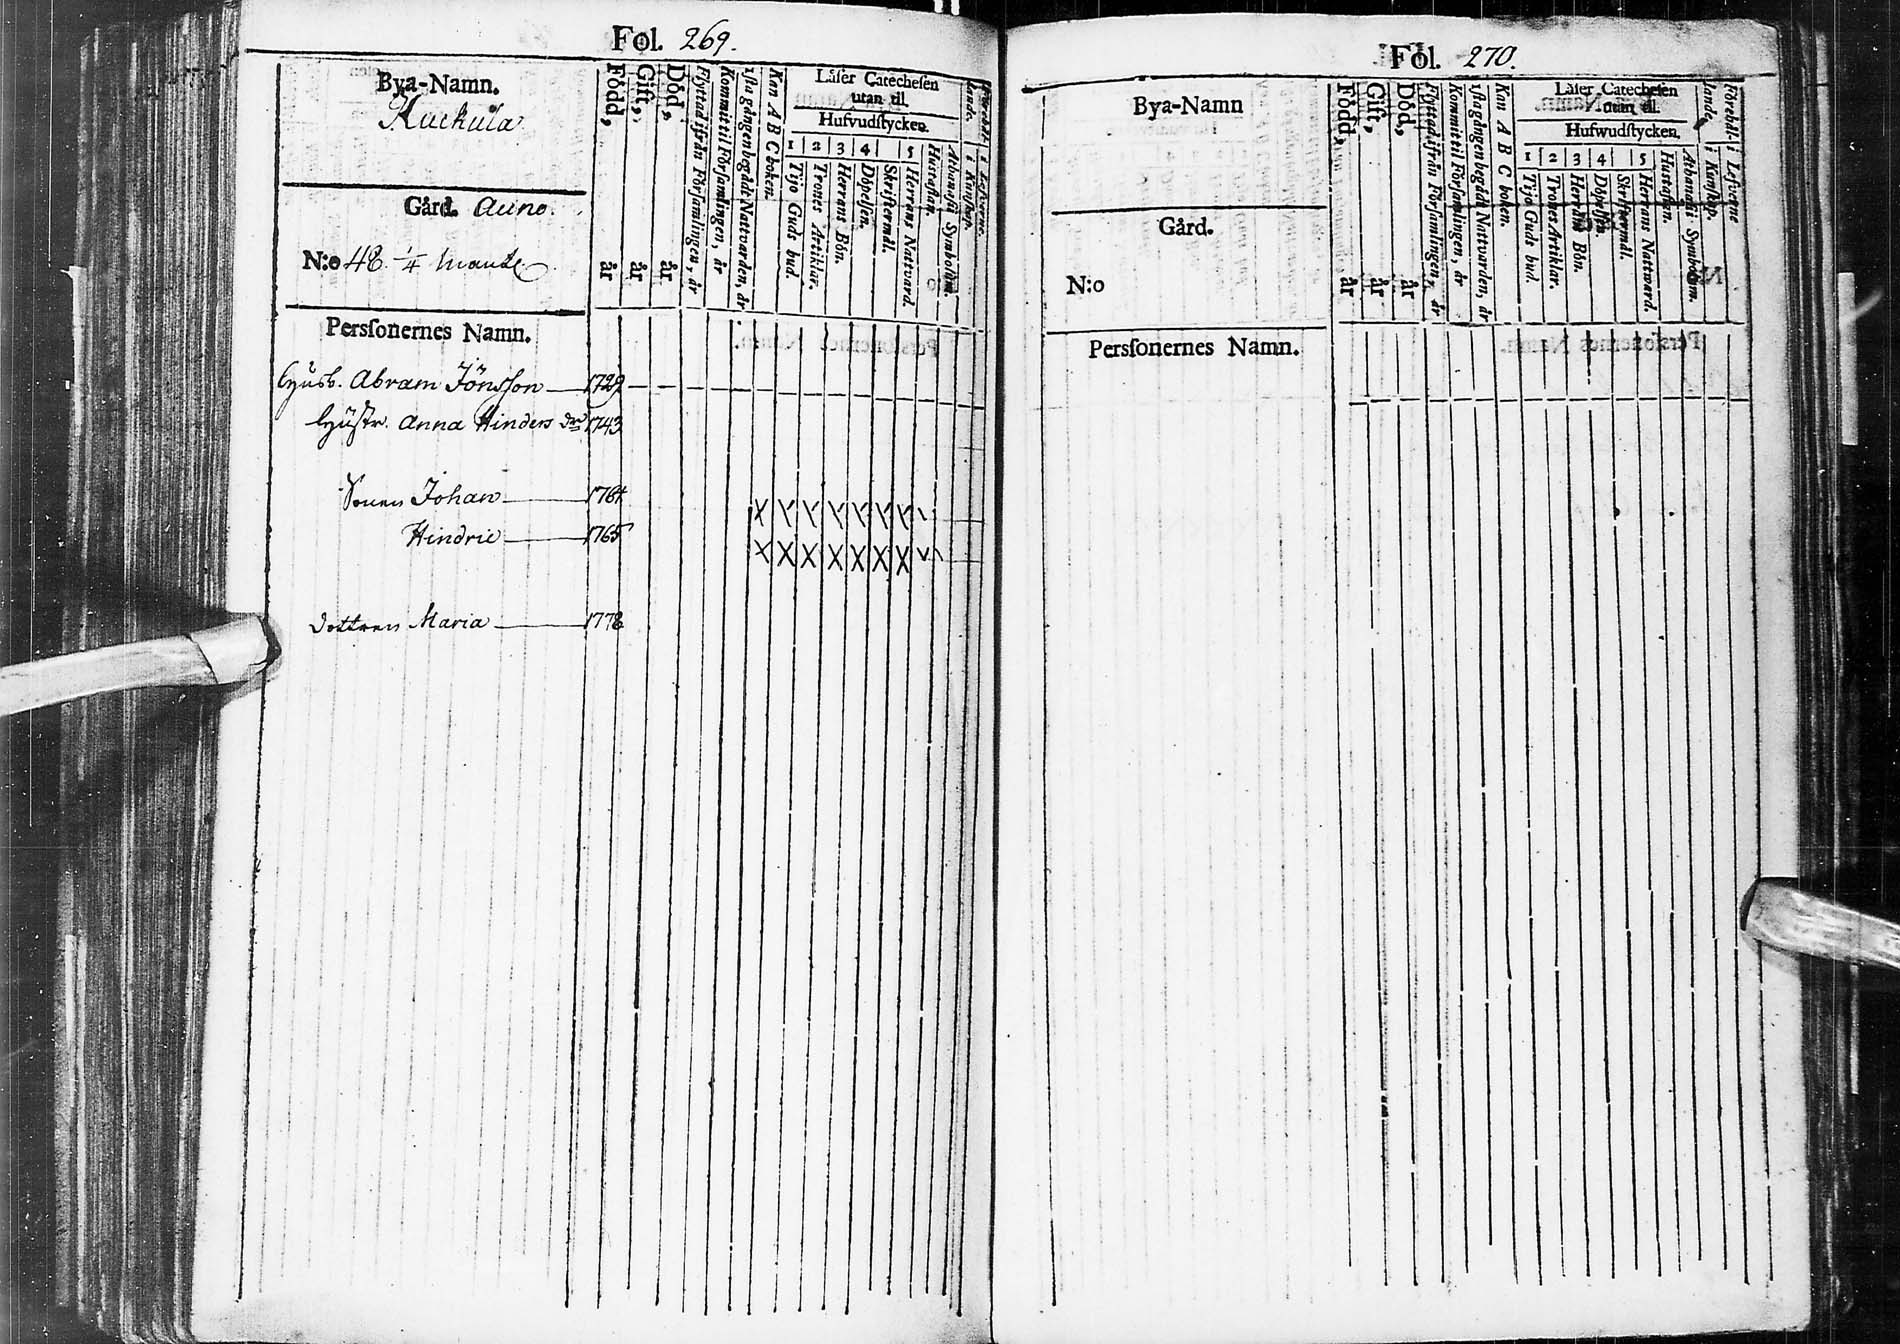 Fol. 269.
Bya-Namn.
Kuckula
Gård. Auno.
N:o 48 1/4
Persſonernes Namn.
Född, år
Gift, år
Död, år
Flyttad ifrån Förſamlingen, år
Kommit til Förſamlingen, år
1ſta gången begådt Nattvarden, år
Kan A B C boken.
Läſer Catecheſen
utan til.
Hufvudſtycken.
1 2 3 4 5
Tijo Guds bud.
Trones Artiklar.
Herrans Bön.
Döpelſen.
Skriftermål.
Herrans Nattvard.
Huustaflan.
Athanaſii Symbolum.
i Kunſkap.
i Lefverne.
Husb. Abram Jönsſon 1729
Hustr. Anna Hinders dr 1743
Sonen Johan 1764
Hindric 1765
Dottren Maria 1778
Fol. 270.
Bya-Namn
Gård.
N:o
Persſonernes Namn.
Född, år
Gift, år
Död, år
Flyttad ifrån Förſamlingen, år
Kommit til Förſamlingen, år
1ſta gången begådt Nattvarden, år
Kan A B C boken.
Läſer Catecheſen
utan til.
Hufwudſtycken.
1 2 3 4 5
Tijo Guds bud.
Trones Artiklar.
Herrans Bön.
Döpelſen.
Skriftermål.
Herrans Nattvard.
Huſtaflan.
Athanaſii Symbolum.
i Kunſkap.
i Lefverne